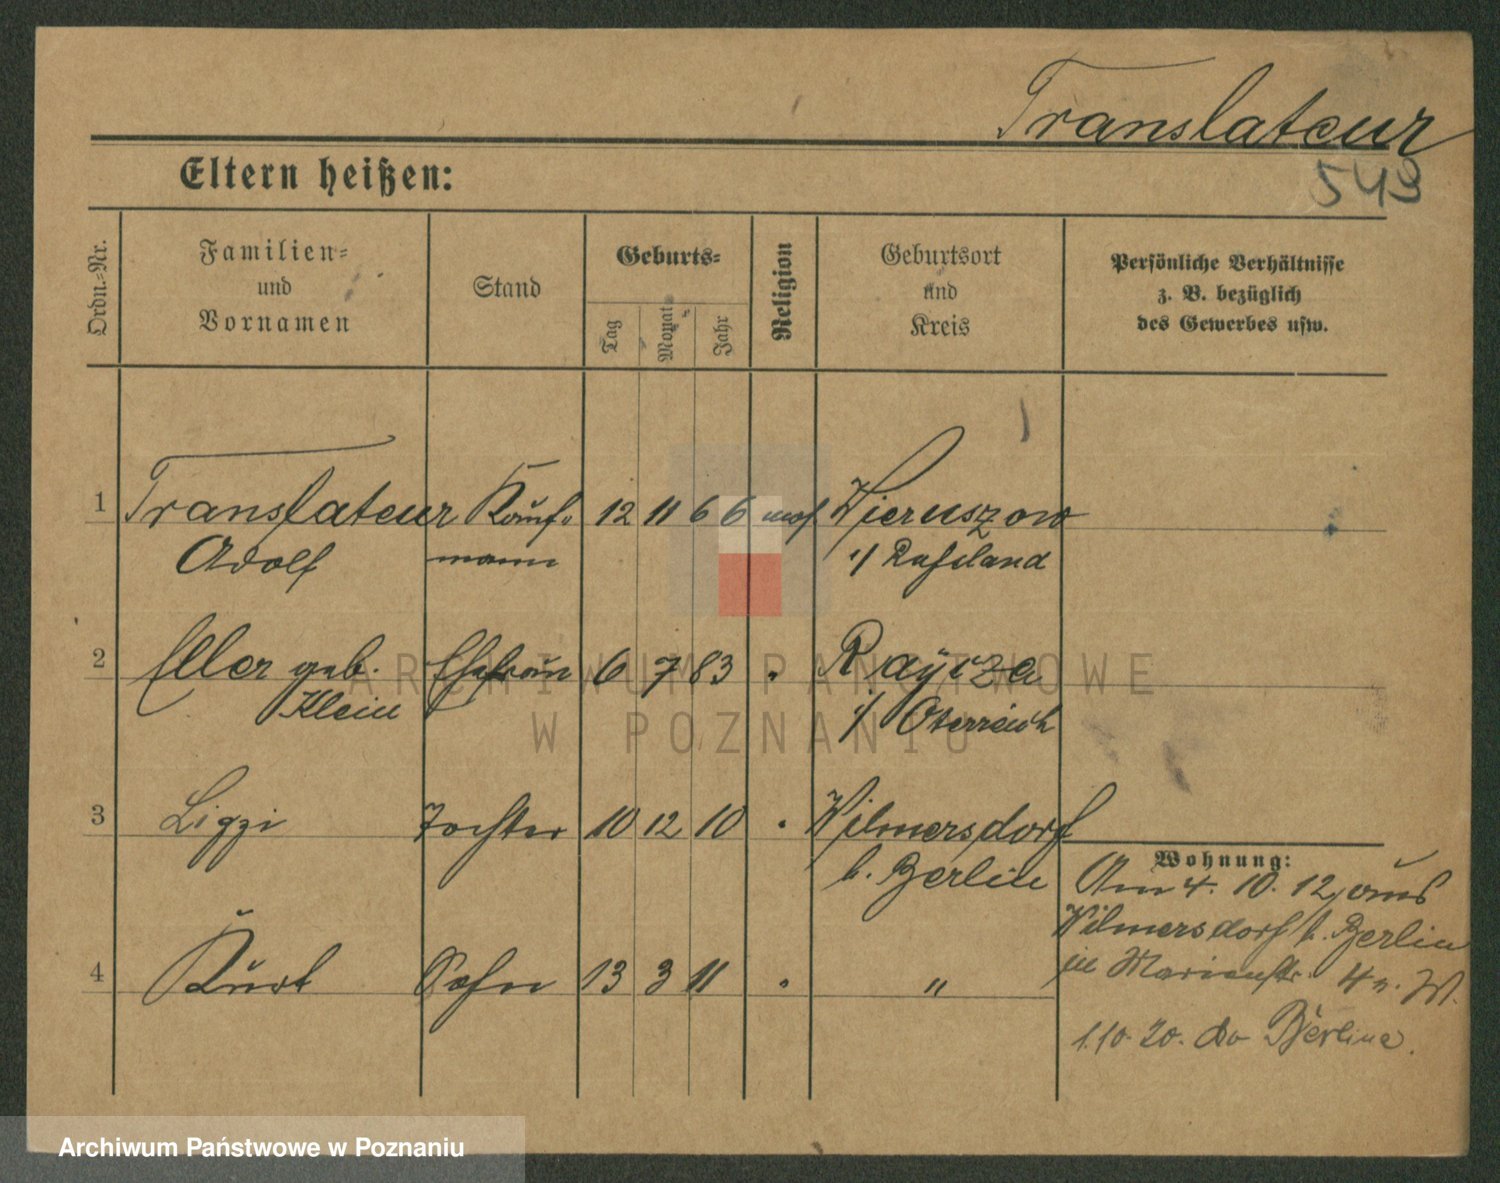 Translateur
543
Eltern heißen:
Ordn.-Nr.
Familien-
und
Vornamen
Stand
Geburts-
Tag
Monat
Jahr
Religion
Geburtsort
und
Kreis
Persönliche Verhältnisse
z. B. bezüglich
des Gewerbes usw.
1 Translateur Kauf- 12 11 66 mos. Wieruszow
Adolf mann i/ Russland
2 Eller geb. Ehefrau 6 7 83 " Raycza
Klein i/ Österreich
3 Ligzi Tochter 10 12 10 " Wilmersdorf
b. Berlin
4 Kurt Sohn 13 3 11 " "
Wohnung:
Am 4. 10. 12, aus
Wilmersdorf b. Berlin
in Marienstr. 4
1.10.20. do Berlina.
ARCHIWUM PAŃSTWOWE
W POZNANIU
Archiwum Państwowe w Poznaniu